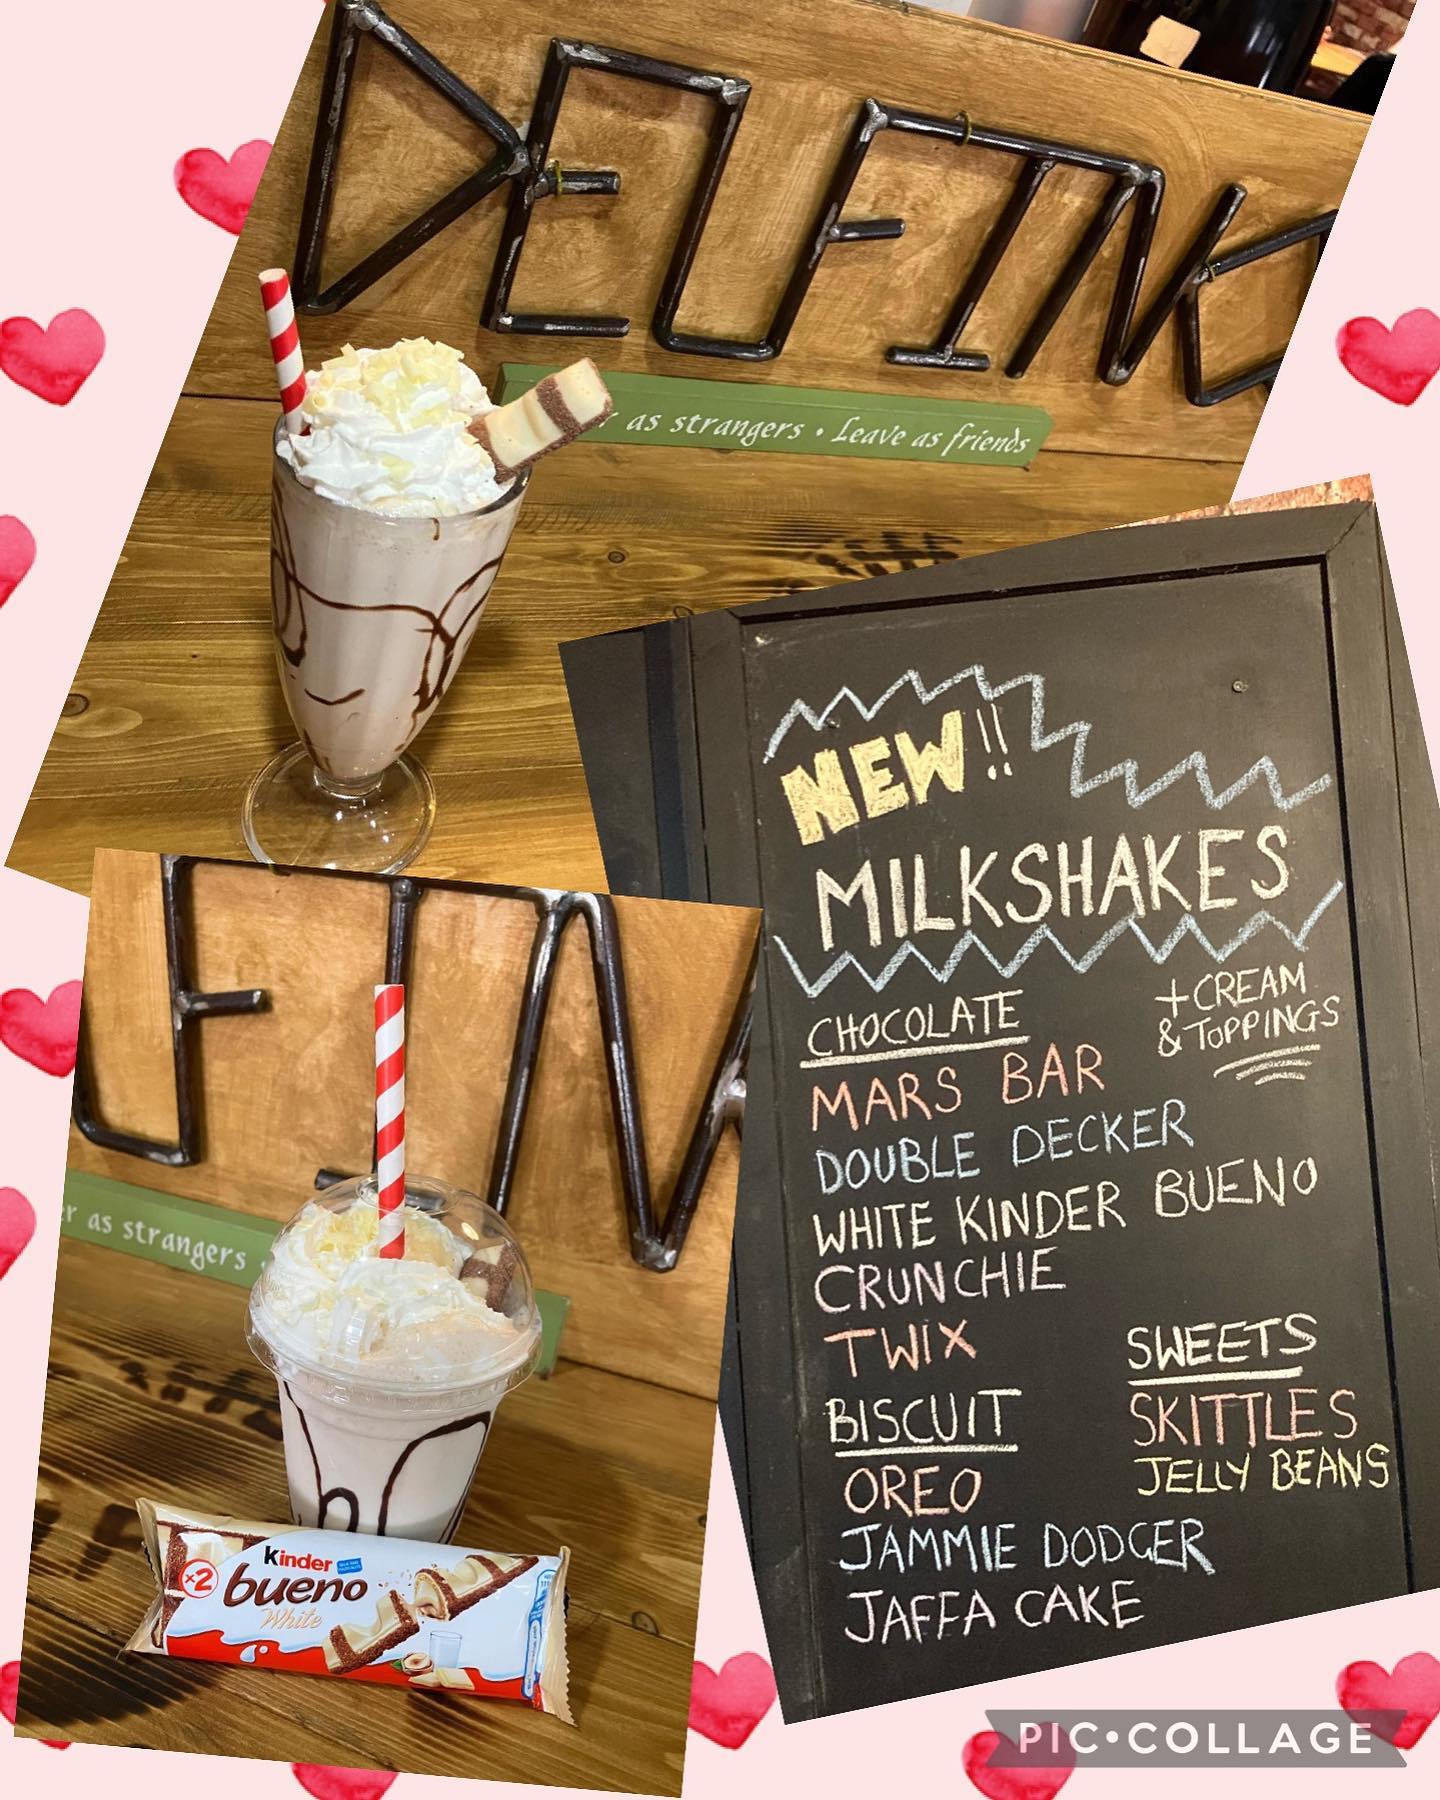 DELFINO
r as strangers • Leave as friends
NEW!!
MILKSHAKES
CHOCOLATE
+ CREAM
& TOPPINGS
MARS BAR
DOUBLE DECKER
WHITE KINDER BUENO
CRUNCHIE
TWIX
SWEETS
SKITTLES
JELLY BEANS
BISCUIT
OREO
JAMMIE DODGER
JAFFA CAKE
er as strangers •
x2
Kinder
bueno
White
PIC•COLLAGE